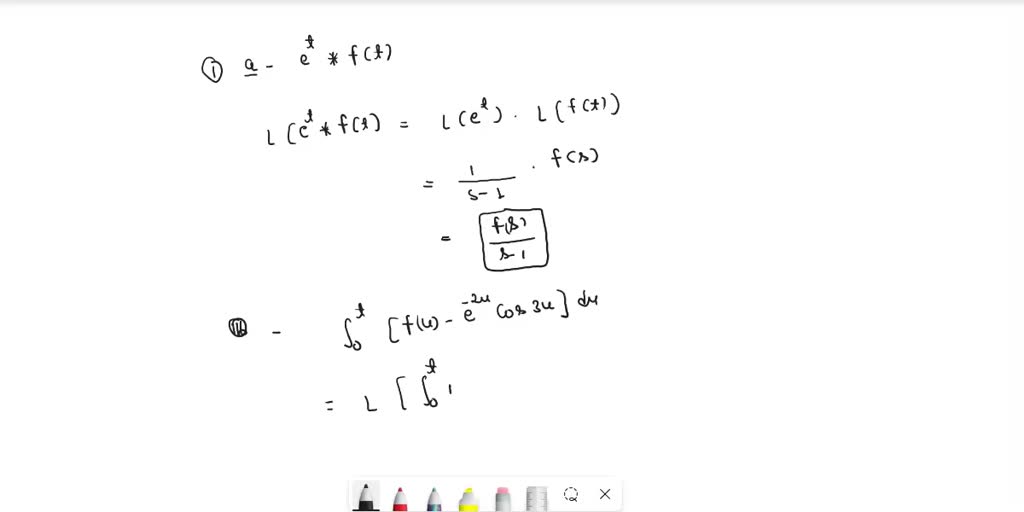 ① a - e^t * f(t)
L(e^t * f(t) = L(e^t) . L(f(t))
= 1/(s-1) . f(s)
= f(s)/(s-1)
- ∫_0^t [f(u) - e^{-2u} Cos 3u] du
= L [∫_0^t